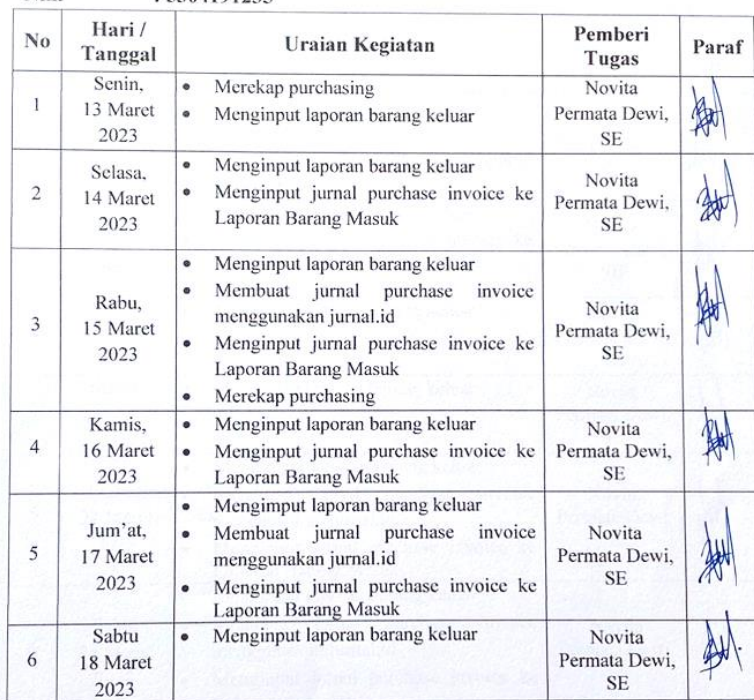 No
Hari /
Tanggal
Uraian Kegiatan
Pemberi
Tugas
Paraf
1
Senin,
13 Maret
2023
• Merekap purchasing
• Menginput laporan barang keluar
Novita
Permata Dewi,
SE
2
Selasa,
14 Maret
2023
• Menginput laporan barang keluar
• Menginput jurnal purchase invoice ke
Laporan Barang Masuk
Novita
Permata Dewi,
SE
3
Rabu,
15 Maret
2023
• Menginput laporan barang keluar
• Membuat jurnal purchase invoice
menggunakan jurnal.id
• Menginput jurnal purchase invoice ke
Laporan Barang Masuk
• Merekap purchasing
Novita
Permata Dewi,
SE
4
Kamis,
16 Maret
2023
• Menginput laporan barang keluar
• Menginput jurnal purchase invoice ke
Laporan Barang Masuk
Novita
Permata Dewi,
SE
5
Jum'at,
17 Maret
2023
• Mengimput laporan barang keluar
• Membuat jurnal purchase invoice
menggunakan jurnal.id
• Menginput jurnal purchase invoice ke
Laporan Barang Masuk
Novita
Permata Dewi,
SE
6
Sabtu
18 Maret
2023
• Menginput laporan barang keluar
Novita
Permata Dewi,
SE